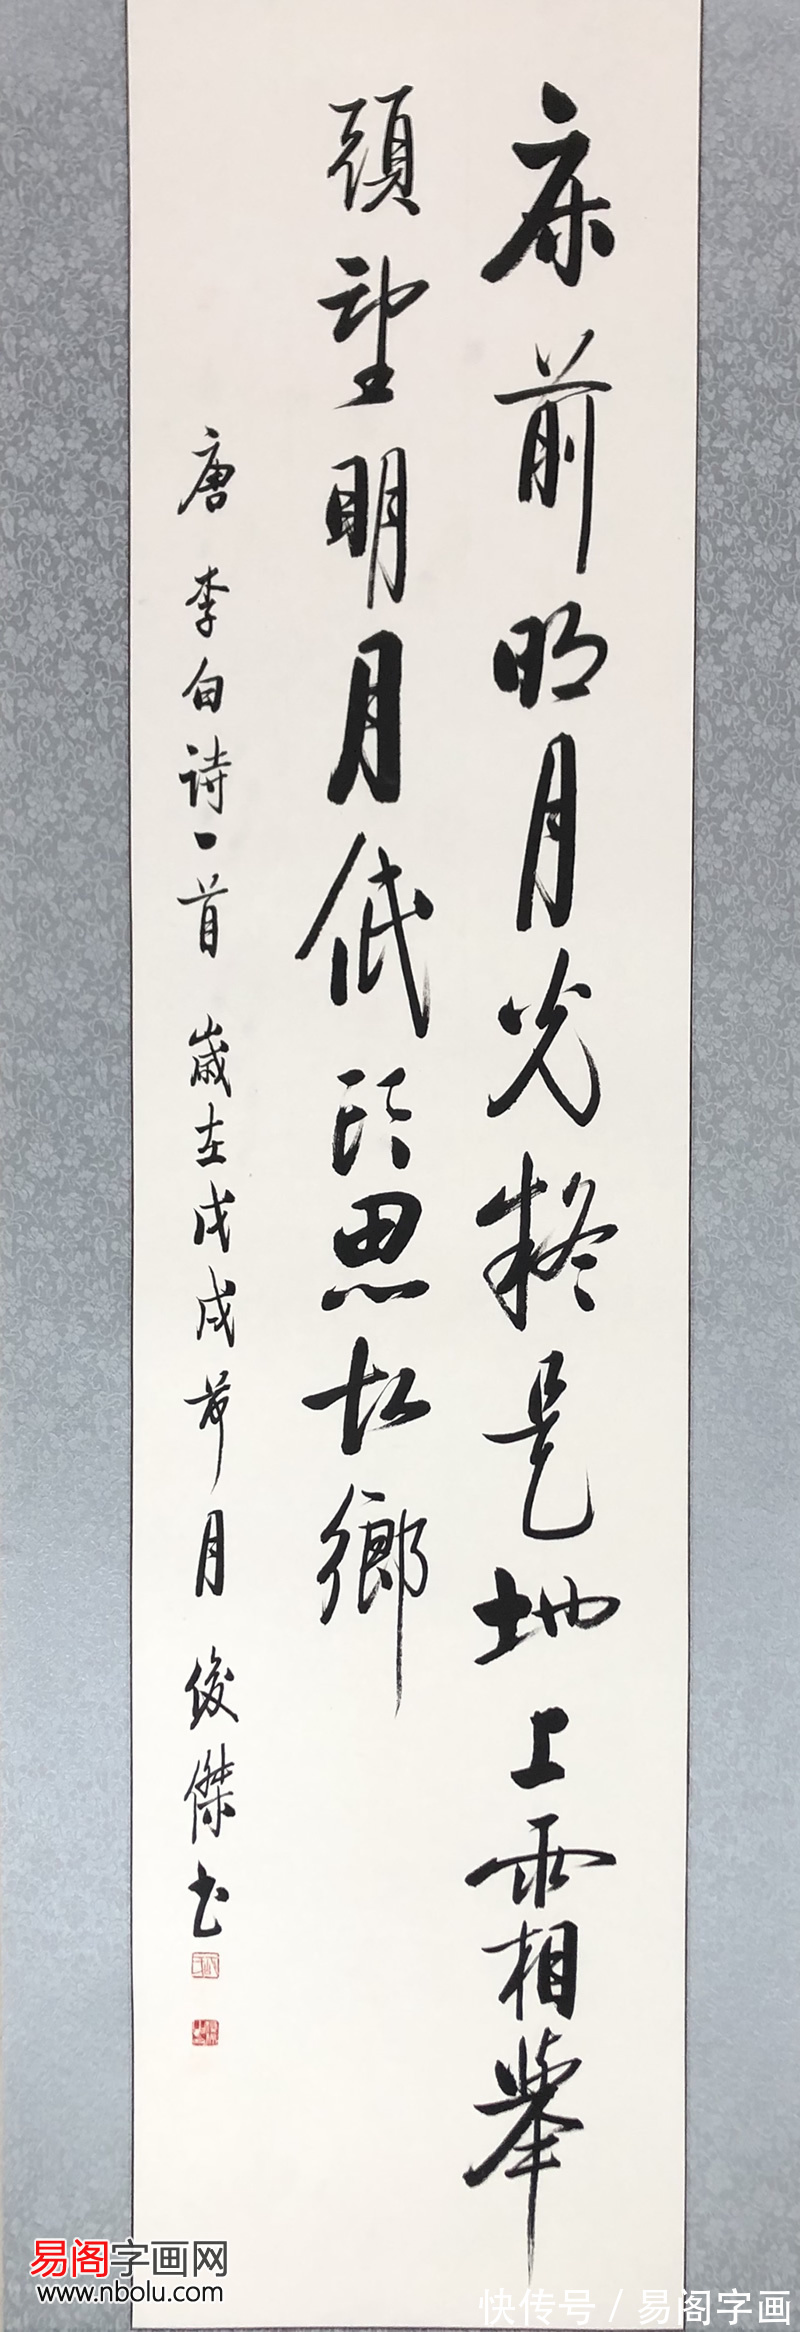 床前明月光疑是地上霜举
頭望明月低头思故鄉
唐 李白诗一首 歲在戊戌荷月 俊傑书
易阁字画网
www.nbolu.com
快传号 / 易阁字画